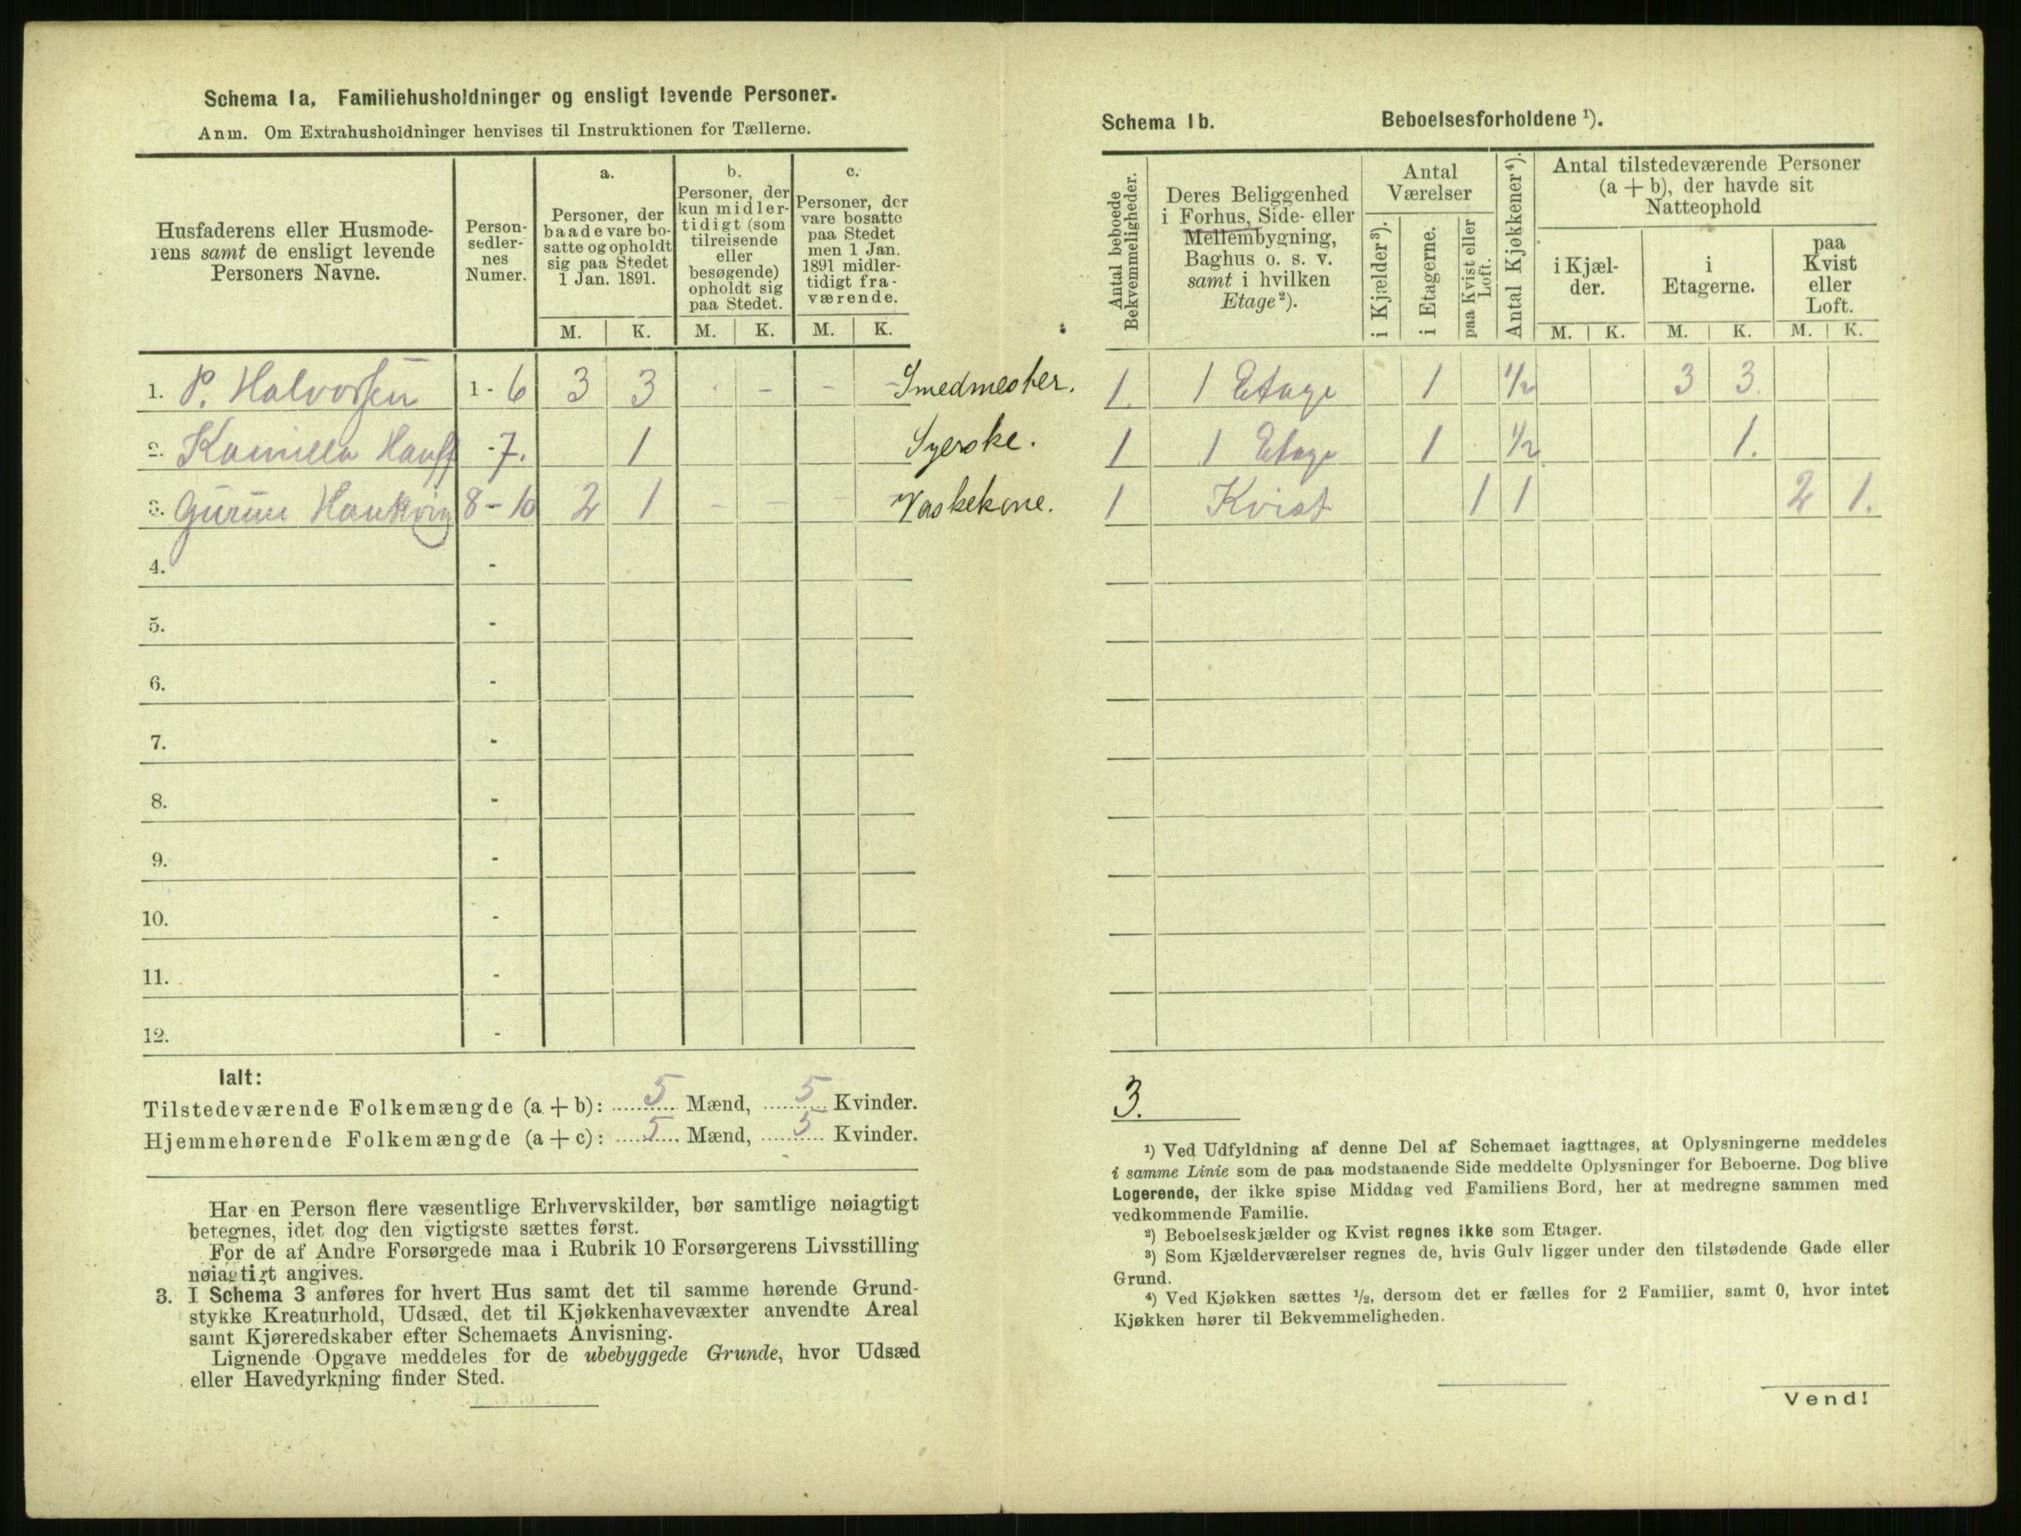 Schema 1a, Familiehusholdninger og ensligt levende Personer.
Anm. Om Extrahusholdninger henvises til Instruktionen for Tællerne.
Husfaderens eller Husmode-
rens samt de ensligt levende
Personers Navne.
Person-
sedler-
nes
Numer.
a.
Personer, der
baade vare bo-
satte og opholdt
sig paa Stedet
1 Jan. 1891.
b.
Personer, der
kun midler-
tidigt (som
tilreisende
eller
besøgende)
opholdt sig
paa Stedet.
c.
Personer, der
vare bosatte
paa Stedet
men 1 Jan.
1891 midler-
tidigt fra-
værende.
M. K. M. K. M. K.
1. P. Halvorsen 1-6 3 3 - - - - Smedmester.
2. Kamilla Hauff -7. 1 Syerske.
3. Gurine 8-10 2 1 - - Vaskekone.
4. -
5. -
6. -
7. -
8. -
9. -
10. -
11. -
12. -
Ialt:
Tilstedeværende Folkemængde (a + b): 5 Mænd, 5 Kvinder.
Hjemmehørende Folkemængde (a + c): 5 Mænd, 5 Kvinder.
Har en Person flere væsentlige Erhvervskilder, bør samtlige nøiagtigt
betegnes, idet dog den vigtigste sættes først.
For de af Andre Forsørgede maa i Rubrik 10 Forsørgerens Livsstilling
nøiagtigt angives.
3. I Schema 3 anføres for hvert Hus samt det til samme hørende Grund-
stykke Kreaturhold, Udsæd, det til Kjøkkenhavevæxter anvendte Areal
samt Kjøreredskaber efter Schemaets Anvisning.
Lignende Opgave meddeles for de ubebyggede Grunde, hvor Udsæd
eller Havedyrkning finder Sted.
Schema 1b. Beboelsesforholdene ¹).
Antal beboede
Bekvemmeligheder.
Deres Beliggenhed
i Forhus, Side- eller
Mellembygning,
Baghus o. s. v.
samt i hvilken
Etage ²).
Antal
Værelser
i Kjælder ³).
i Etagerne.
paa Kvist eller
Loft.
Antal Kjøkkener ⁴).
Antal tilstedeværende Personer
(a + b), der havde sit
Natteophold
i Kjæl-
der.
i
Etagerne.
paa
Kvist
eller
Loft.
M. K. M. K. M. K.
1. 1 Etage 1 1/2 3 3.
1 1 Etage 1 1/2 1.
1 Kvist 1 1 2 1.
3.
¹) Ved Udfyldning af denne Del af Schemaet iagttages, at Oplysningerne meddeles
i samme Linie som de paa modstaaende Side meddelte Oplysninger for Beboerne. Dog blive
Logerende, der ikke spise Middag ved Familiens Bord, her at medregne sammen med
vedkommende Familie.
²) Beboelseskjælder og Kvist regnes ikke som Etager.
³) Som Kjælderværelser regnes de, hvis Gulv ligger under den tilstødende Gade eller
Grund.
⁴) Ved Kjøkken sættes ½, dersom det er fælles for 2 Familier, samt 0, hvor intet
Kjøkken hører til Bekvemmeligheden.
Vend!